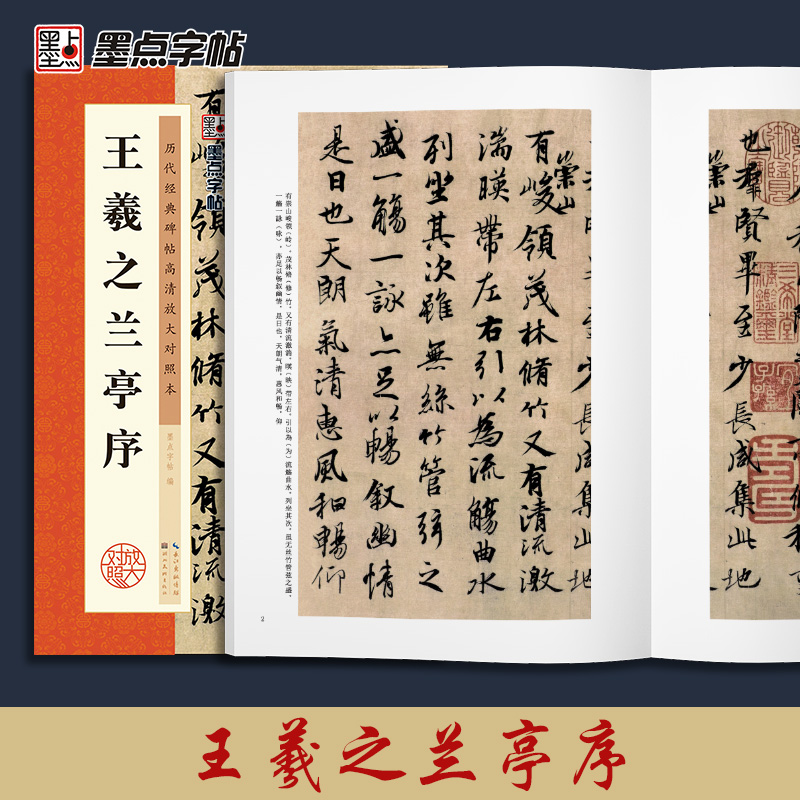 墨点
墨点字帖
历代经典碑帖高清放大对照本
王羲之兰亭序
墨点字帖 编
放大对照
长江出版传媒
湖北美术出版社
墨点字帖
領茂林脩竹又有清流激
也羣賢畢至少長咸集此地
崇山
有峻領茂林脩竹又有清流激
湍暎帶左右引以為流觴曲水
列坐其次雖無絲竹管弦之
盛一觴一詠亦足以暢叙幽情
是日也天朗氣清惠風和暢仰
有崇山峻领（岭），茂林脩（修）竹，又有清流激湍，暎（映）带左右，引以為（为）流觞曲水，列坐其次。虽无丝竹管弦之盛，
一觞一詠（咏），亦足以畅叙幽情。是日也，天朗气清，惠风和畅，仰
2
王羲之兰亭序